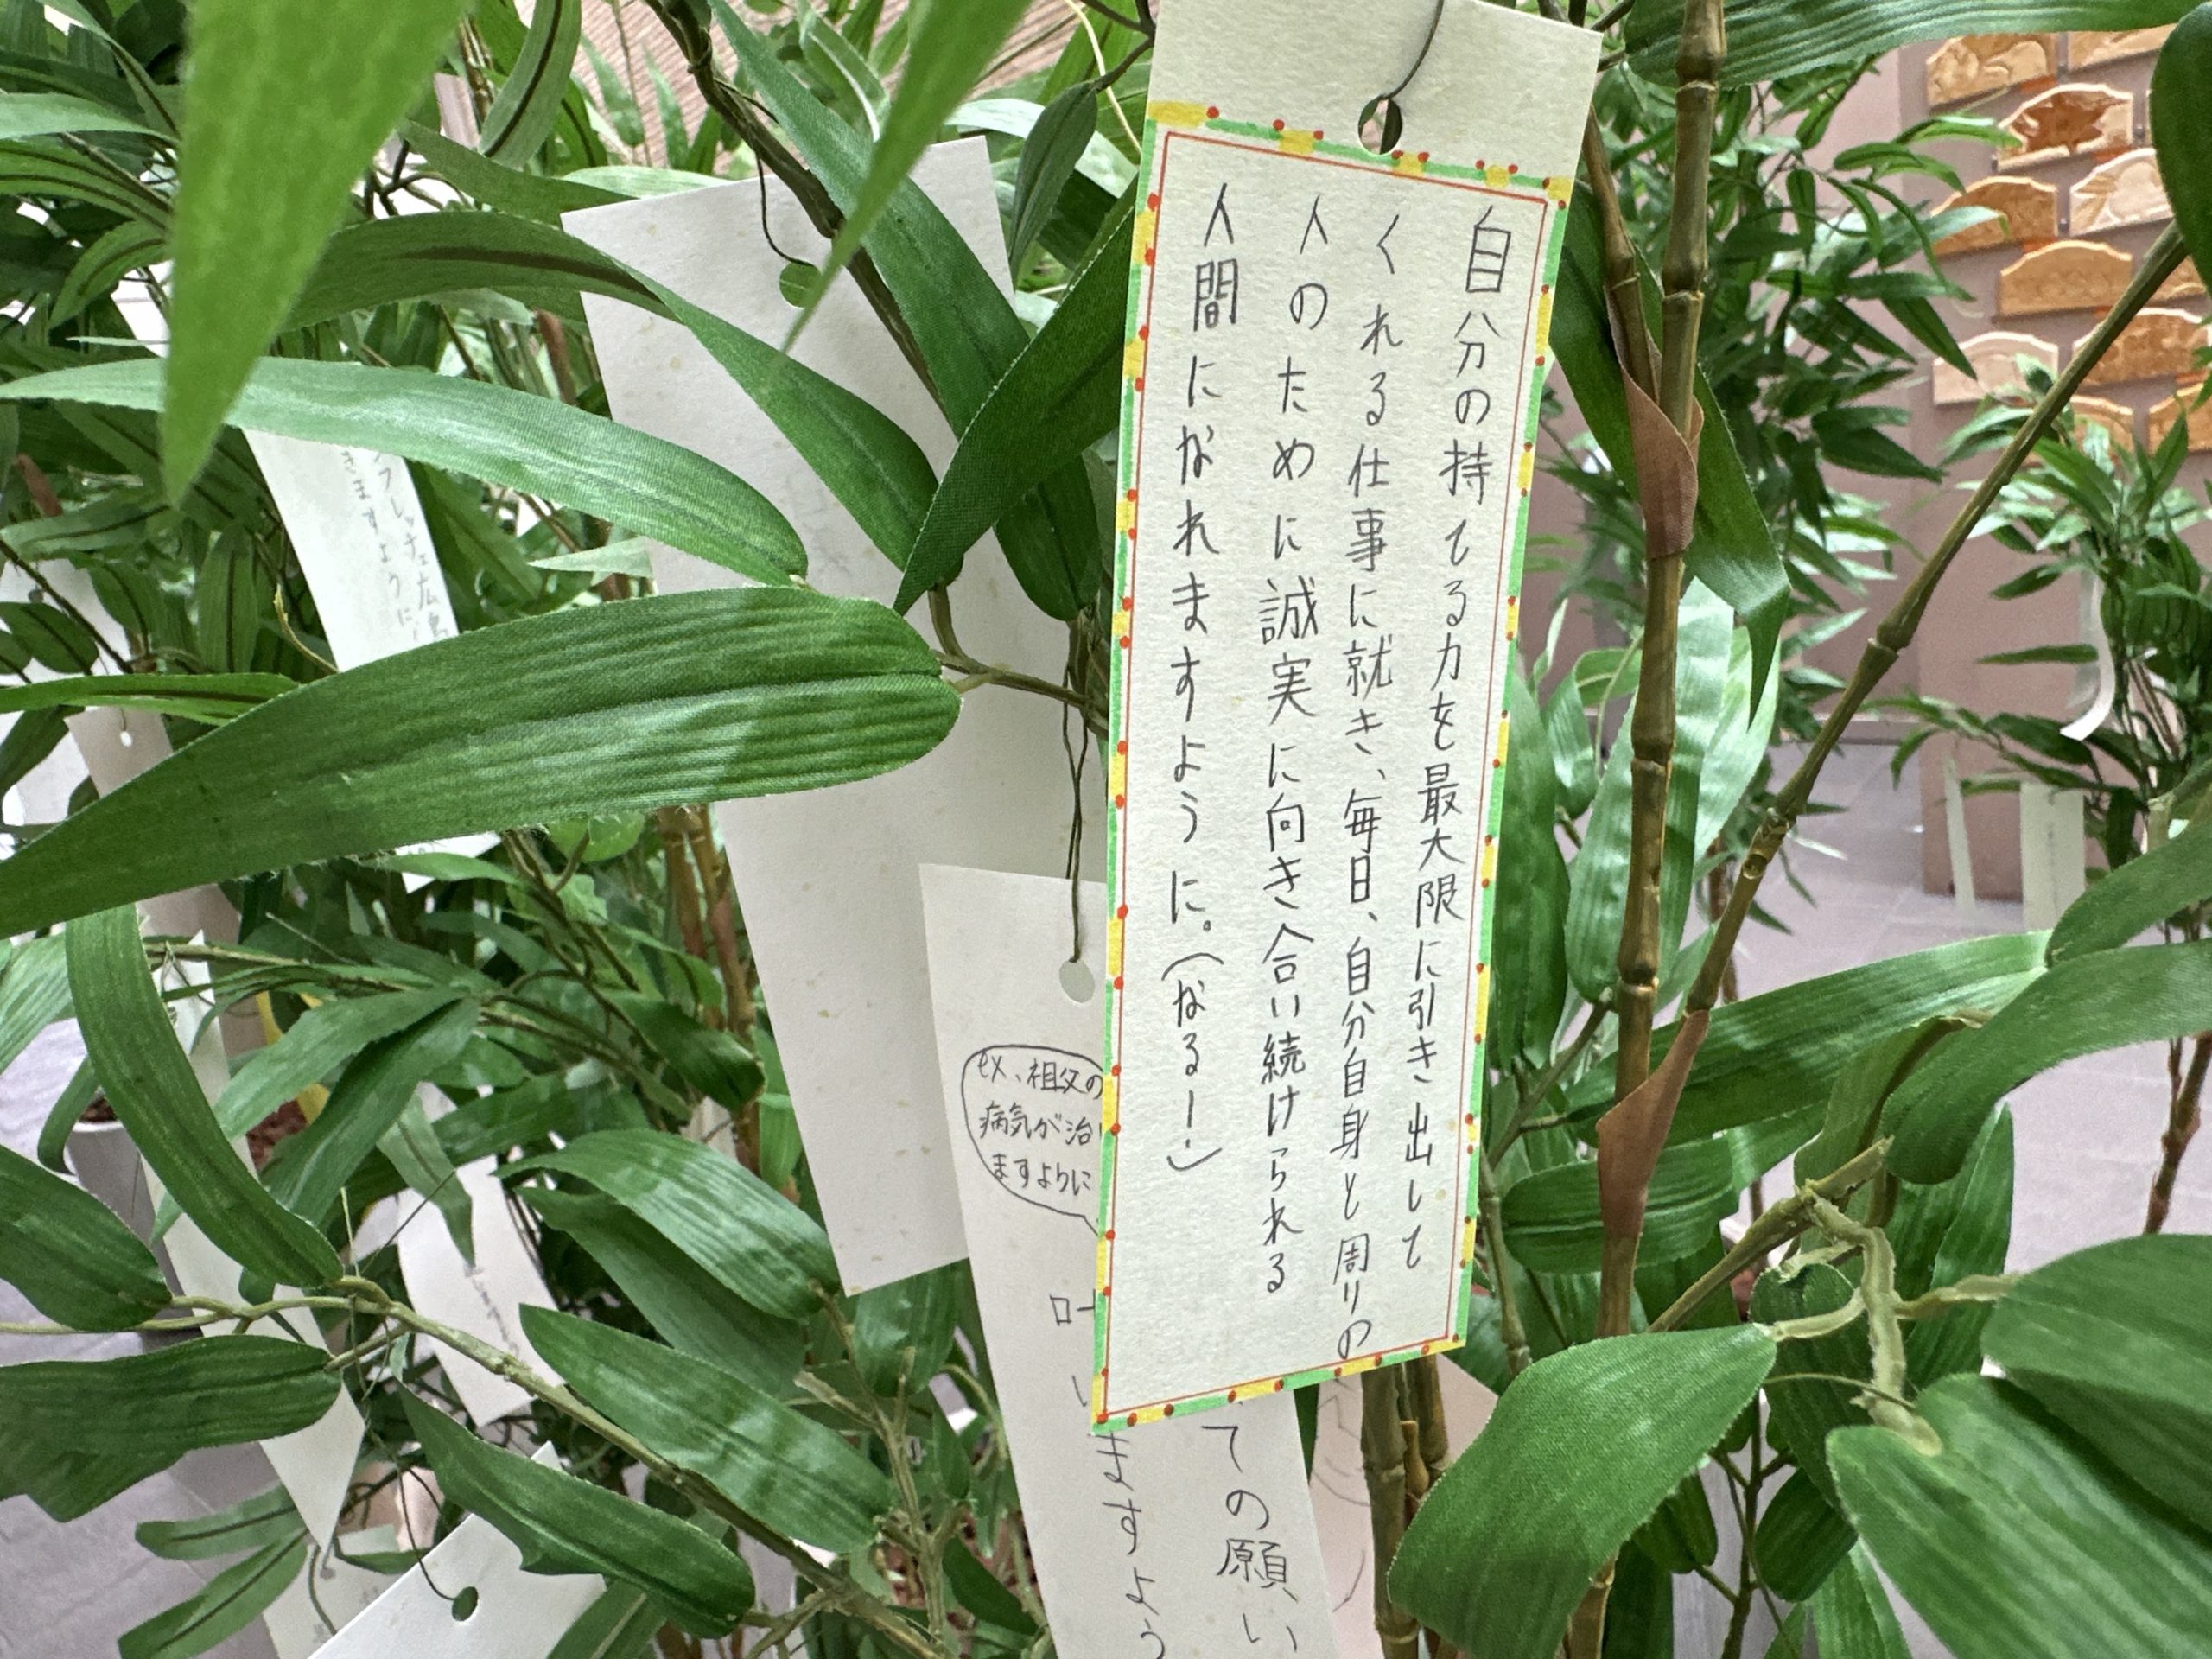 自分の持てる力を最大限に引き出して
くれる仕事に就き、毎日、自分自身と周りの
人のために誠実に向き合い続けられる
人間になれますように。(なるー!)
祖父の
病気が治
ますように
ての願い
ますよう
フレッチェ広島
きますように!